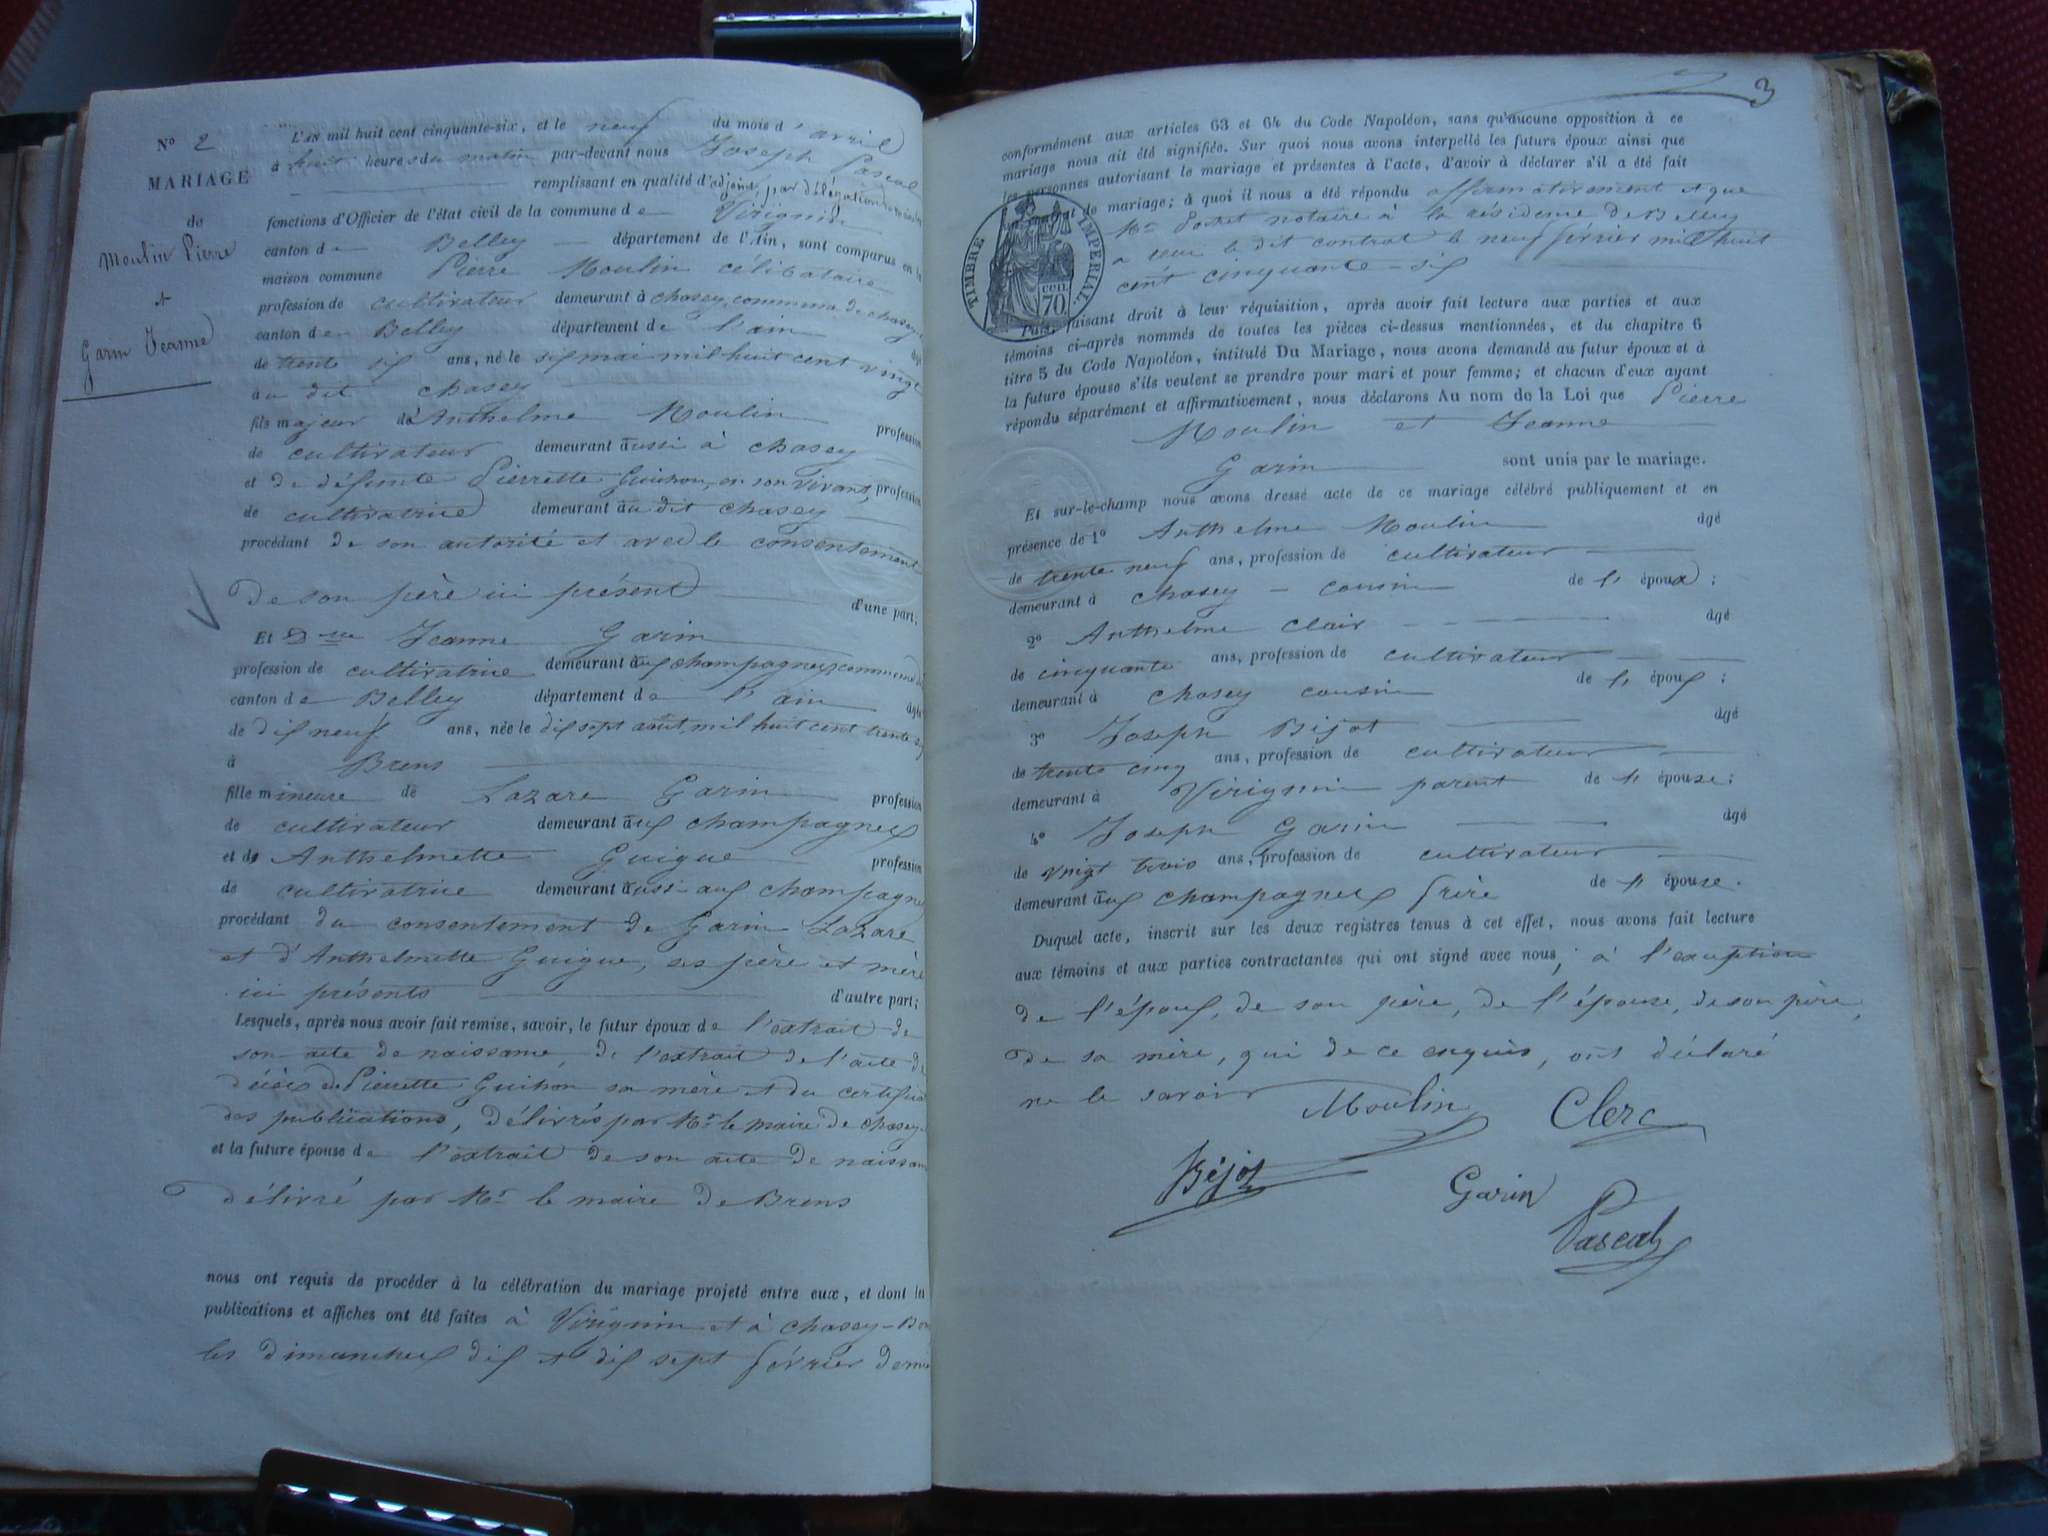 N° 2
MARIAGE
de
Moulin Pierre
et
Garin Jeanne
L'AN mil huit cent cinquante-six, et le neuf du mois d'avril
à huit heures du matin par-devant nous Joseph Pascal
remplissant en qualité d'adjoint, par délégation
fonctions d'Officier de l'état civil de la commune de Virignin
canton de Belley département de l'Ain, sont comparus en la
maison commune Pierre Moulin célibataire
profession de cultivateur demeurant à chasey, commune de chasey
canton de Belley département de l'ain âgé
de trente six ans, né le six mai mil huit cent vingt
au dit chasey
fils majeur d'Anthelme Moulin profession
de cultivateur demeurant aussi à chasey
et de défunte Pierrette Guithon, en son vivant, profession
de cultivatrice demeurant au dit chasey
procédant de son autorité et avec le consentement
de son père ici présent d'une part.
Et Dlle Jeanne Garin
profession de cultivatrice demeurant aux champagnes, commune de
canton de Belley département de l'ain âgée
de dix neuf ans, née le dix sept août mil huit cent trente six
à Brens
fille mineure de Lazare Garin profession
de cultivateur demeurant aux champagnes
et de Anthelmette Guigue profession
de cultivatrice demeurant aussi aux champagnes
procédant du consentement de Garin Lazare
et d'Anthelmette Guigue, ses père et mère
ici présents d'autre part;
Lesquels, après nous avoir fait remise, savoir, le futur époux de l'extrait de
son acte de naissance, de l'extrait de l'acte de
décès de Pierrette Guithon sa mère et du certificat
des publications, délivrés par Mr le maire de chasey
et la future épouse de l'extrait de son acte de naissance
délivré par Mr le maire de Brens
nous ont requis de procéder à la célébration du mariage projeté entre eux, et dont les
publications et affiches ont été faites à Virignin et à chasey-Bons
les dimanches dix et dix sept février dernier
3
conformément aux articles 63 et 64 du Code Napoléon, sans qu'aucune opposition à ce
mariage nous ait été signifiée. Sur quoi nous avons interpellé les futurs époux ainsi que
les personnes autorisant le mariage et présentes à l'acte, d'avoir à déclarer s'il a été fait
de mariage; à quoi il nous a été répondu affirmativement et que
Me notaire à la résidence de Belley
a reçu le dit contrat le neuf février mil huit
cent cinquante-six
TIMBRE IMPERIAL
CCIT.
70.
Puis, faisant droit à leur réquisition, après avoir fait lecture aux parties et aux
témoins ci-après nommés de toutes les pièces ci-dessus mentionnées, et du chapitre 6
titre 5 du Code Napoléon, intitulé Du Mariage, nous avons demandé au futur époux et à
la future épouse s'ils veulent se prendre pour mari et pour femme; et chacun d'eux ayant
répondu séparément et affirmativement, nous déclarons Au nom de la Loi que Pierre
Moulin et Jeanne
Garin sont unis par le mariage.
Et sur-le-champ nous avons dressé acte de ce mariage célébré publiquement et en
présence de 1° Anthelme Moulin âgé
de trente neuf ans, profession de cultivateur
demeurant à chasey - cousin de l'époux;
2° Anthelme Clair âgé
de cinquante ans, profession de cultivateur
demeurant à chasey cousin de l'époux;
3° Joseph Bijot âgé
de trente cinq ans, profession de cultivateur
demeurant à Virignin parent de l'épouse;
4° Joseph Garin âgé
de vingt trois ans, profession de cultivateur
demeurant aux champagnes frère de l'épouse.
Duquel acte, inscrit sur les deux registres tenus à cet effet, nous avons fait lecture
aux témoins et aux parties contractantes qui ont signé avec nous, à l'exception
de l'époux, de son père, de l'épouse, de son père,
de sa mère, qui de ce enquis, ont déclaré
ne le savoir
Moulin Clerc
Béjot Garin
Pascal